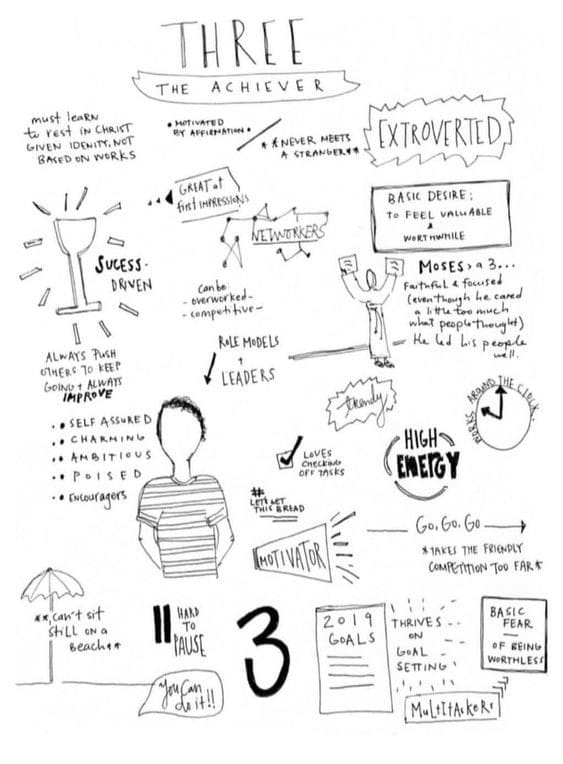 THREE
THE ACHIEVER
must learn
to rest IN CHRIST
GIVEN IDENITY, NOT
BASED ON WORKS
• MOTIVATED
BY AFFIRMATION •
**NEVER MEETS
A STRANGER**
EXTROVERTED
GREAT at
first IMPRESSIONS
NETWORKERS
BASIC DESIRE:
TO FEEL VALUABLE
&
WORTHWHILE
SUCESS-
DRIVEN
Can be
- overworked -
- competitive -
MOSES > a 3...
Faithful & focused
(even though he cared
a little too much
what people thought)
He led his people
well.
ALWAYS PUSH
OTHERS TO KEEP
GOING + ALWAYS
IMPROVE
ROLE MODELS
+
LEADERS
trendy
WORKS AROUND THE CLOCK
• • SELF ASSURED
• • CHARMING
• • AMBITIOUS
• • POISED
• • Encouragers
LOVES
CHECKING
OFF TASKS
HIGH
ENERGY
#
LETS GET
THIS BREAD
MOTIVATOR
GO, GO, GO
*TAKES THE FRIENDLY
COMPETITION TOO FAR*
**can't sit
still on a
beach**
HARD
TO
PAUSE
3
2019
GOALS
THRIVES
ON
GOAL
SETTING
BASIC
FEAR
—
OF BEING
WORTHLESS
You Can
do it!!
MultItAskers